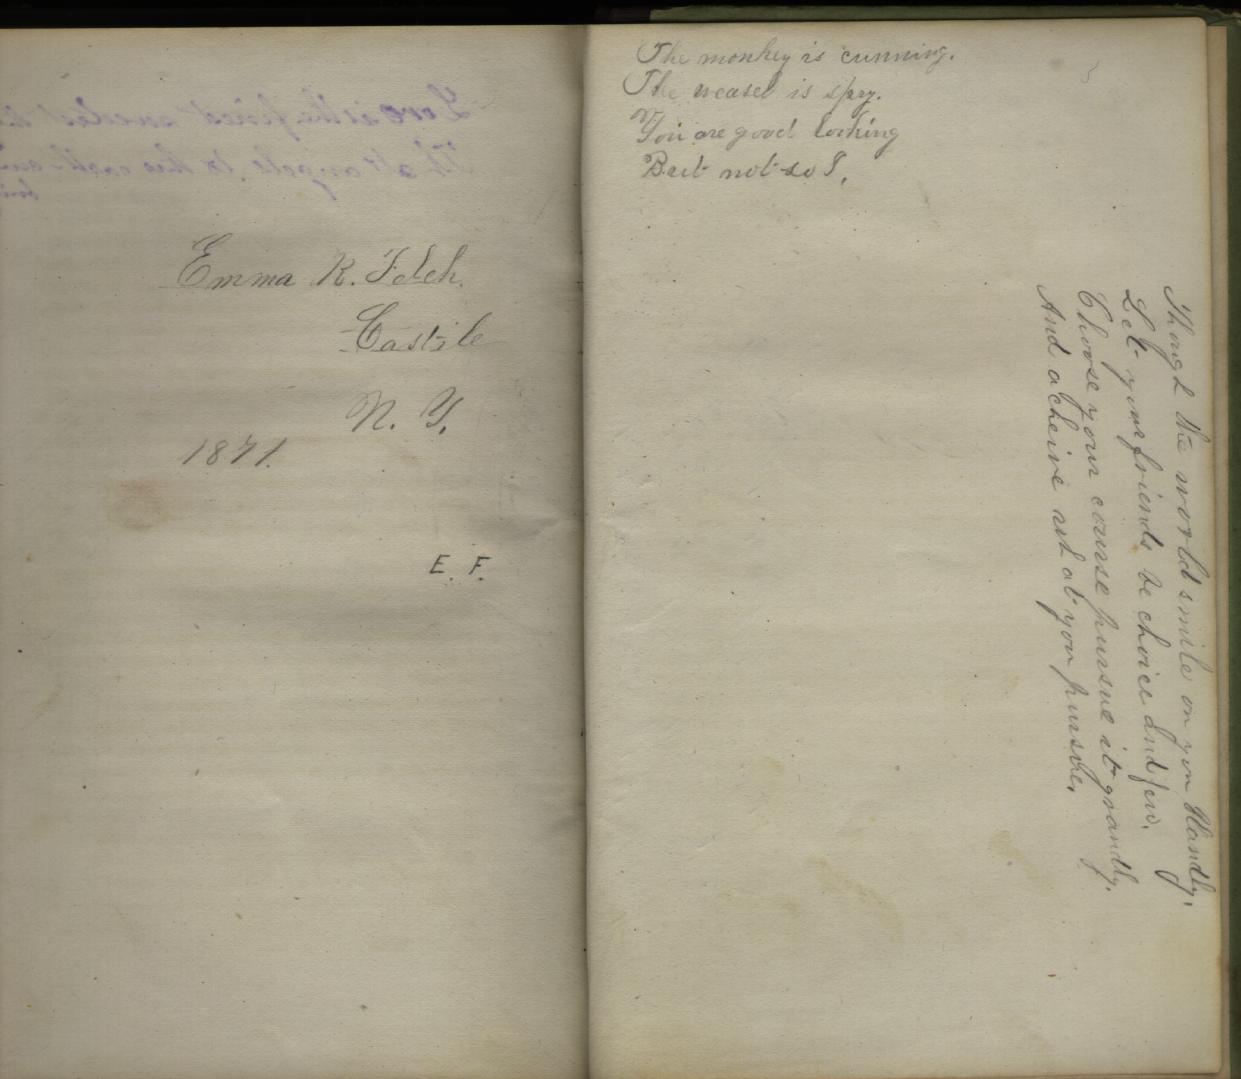 Emma R. Felch.
Castile
N. Y.
1871.
E. F.
The monkey is cunning.
The weasel is spry.
You are good looking
But not so I.
Though the world smile on you blandly,
Let your friends be choice and few,
Choose your course pursue it grandly,
And acheive what you pursue.